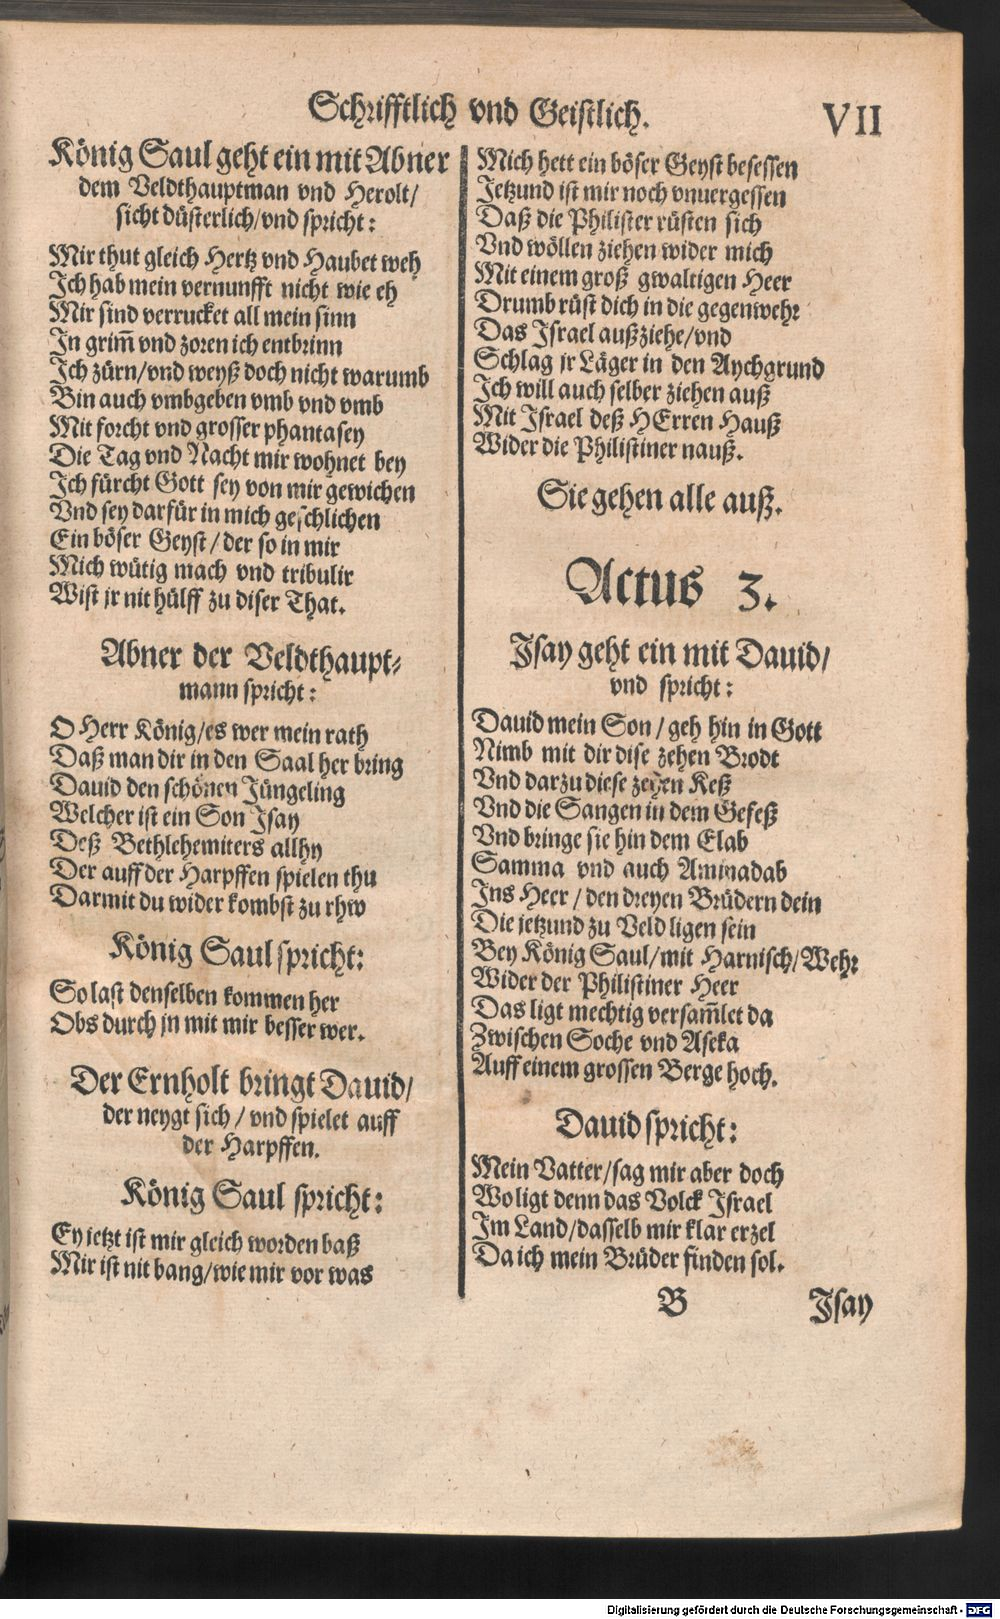 Schrifftlich vnd Geistlich.
VII
König Saul geht ein mit Abner
dem Veldthauptman vnd Herolt/
sicht düsterlich/vnd spricht:
Mir thut gleich Hertz vnd Haubet weh
Ich hab mein vernunfft nicht wie eh
Mir sind verrucket all mein sinn
In grim̃ vnd zoren ich entbrinn
Ich zürn/vnd weyß doch nicht warumb
Bin auch vmbgeben vmb vnd vmb
Mit forcht vnd grosser phantasey
Die Tag vnd Nacht mir wohnet bey
Ich fürcht Gott sey von mir gewichen
Vnd sey darfür in mich geschlichen
Ein böser Geyst/der so in mir
Mich wütig mach vnd tribulir
Wist jr nit hülff zu diser That.
Abner der Veldthaupt-
mann spricht:
O Herr König/es wer mein rath
Daß man dir in den Saal her bring
Dauid den schönen Jüngeling
Welcher ist ein Son Isay
Deß Bethlehemiters allhy
Der auff der Harpffen spielen thu
Darmit du wider kombst zu rhw
König Saul spricht:
So last denselben kommen her
Obs durch jn mit mir besser wer.
Der Ernholt bringt Dauid/
der neygt sich/vnd spielet auff
der Harpffen.
König Saul spricht:
Ey jetzt ist mir gleich worden baß
Mir ist nit bang/wie mir vor was
Mich hett ein böser Geyst besessen
Jetzund ist mir noch vnuergessen
Daß die Philister rüsten sich
Vnd wöllen ziehen wider mich
Mit einem groß gwaltigen Heer
Drumb rüst dich in die gegenwehr
Das Israel außziehe/vnd
Schlag jr Läger in den Aychgrund
Ich will auch selber ziehen auß
Mit Israel deß HErren Hauß
Wider die Philistiner nauß.
Sie gehen alle auß.
Actus 3.
Isay geht ein mit Dauid/
vnd spricht:
Dauid mein Son/geh hin in Gott
Nimb mit dir dise zehen Brodt
Vnd darzu diese zehen Keß
Vnd die Sangen in dem Gefeß
Vnd bringe sie hin dem Elab
Samma vnd auch Aminadab
Ins Heer/den dreyen Brüdern dein
Die jetzund zu Veld ligen sein
Bey König Saul/mit Harnisch/Wehr
Wider der Philistiner Heer
Das ligt mechtig versam̃let da
Zwischen Soche vnd Aseka
Auff einem grossen Berge hoch.
Dauid spricht:
Mein Vatter/sag mir aber doch
Wo ligt denn das Volck Israel
Im Land/dasselb mir klar erzel
Da ich mein Brüder finden sol.
B
Isay
Digitalisierung gefördert durch die Deutsche Forschungsgemeinschaft - DFG